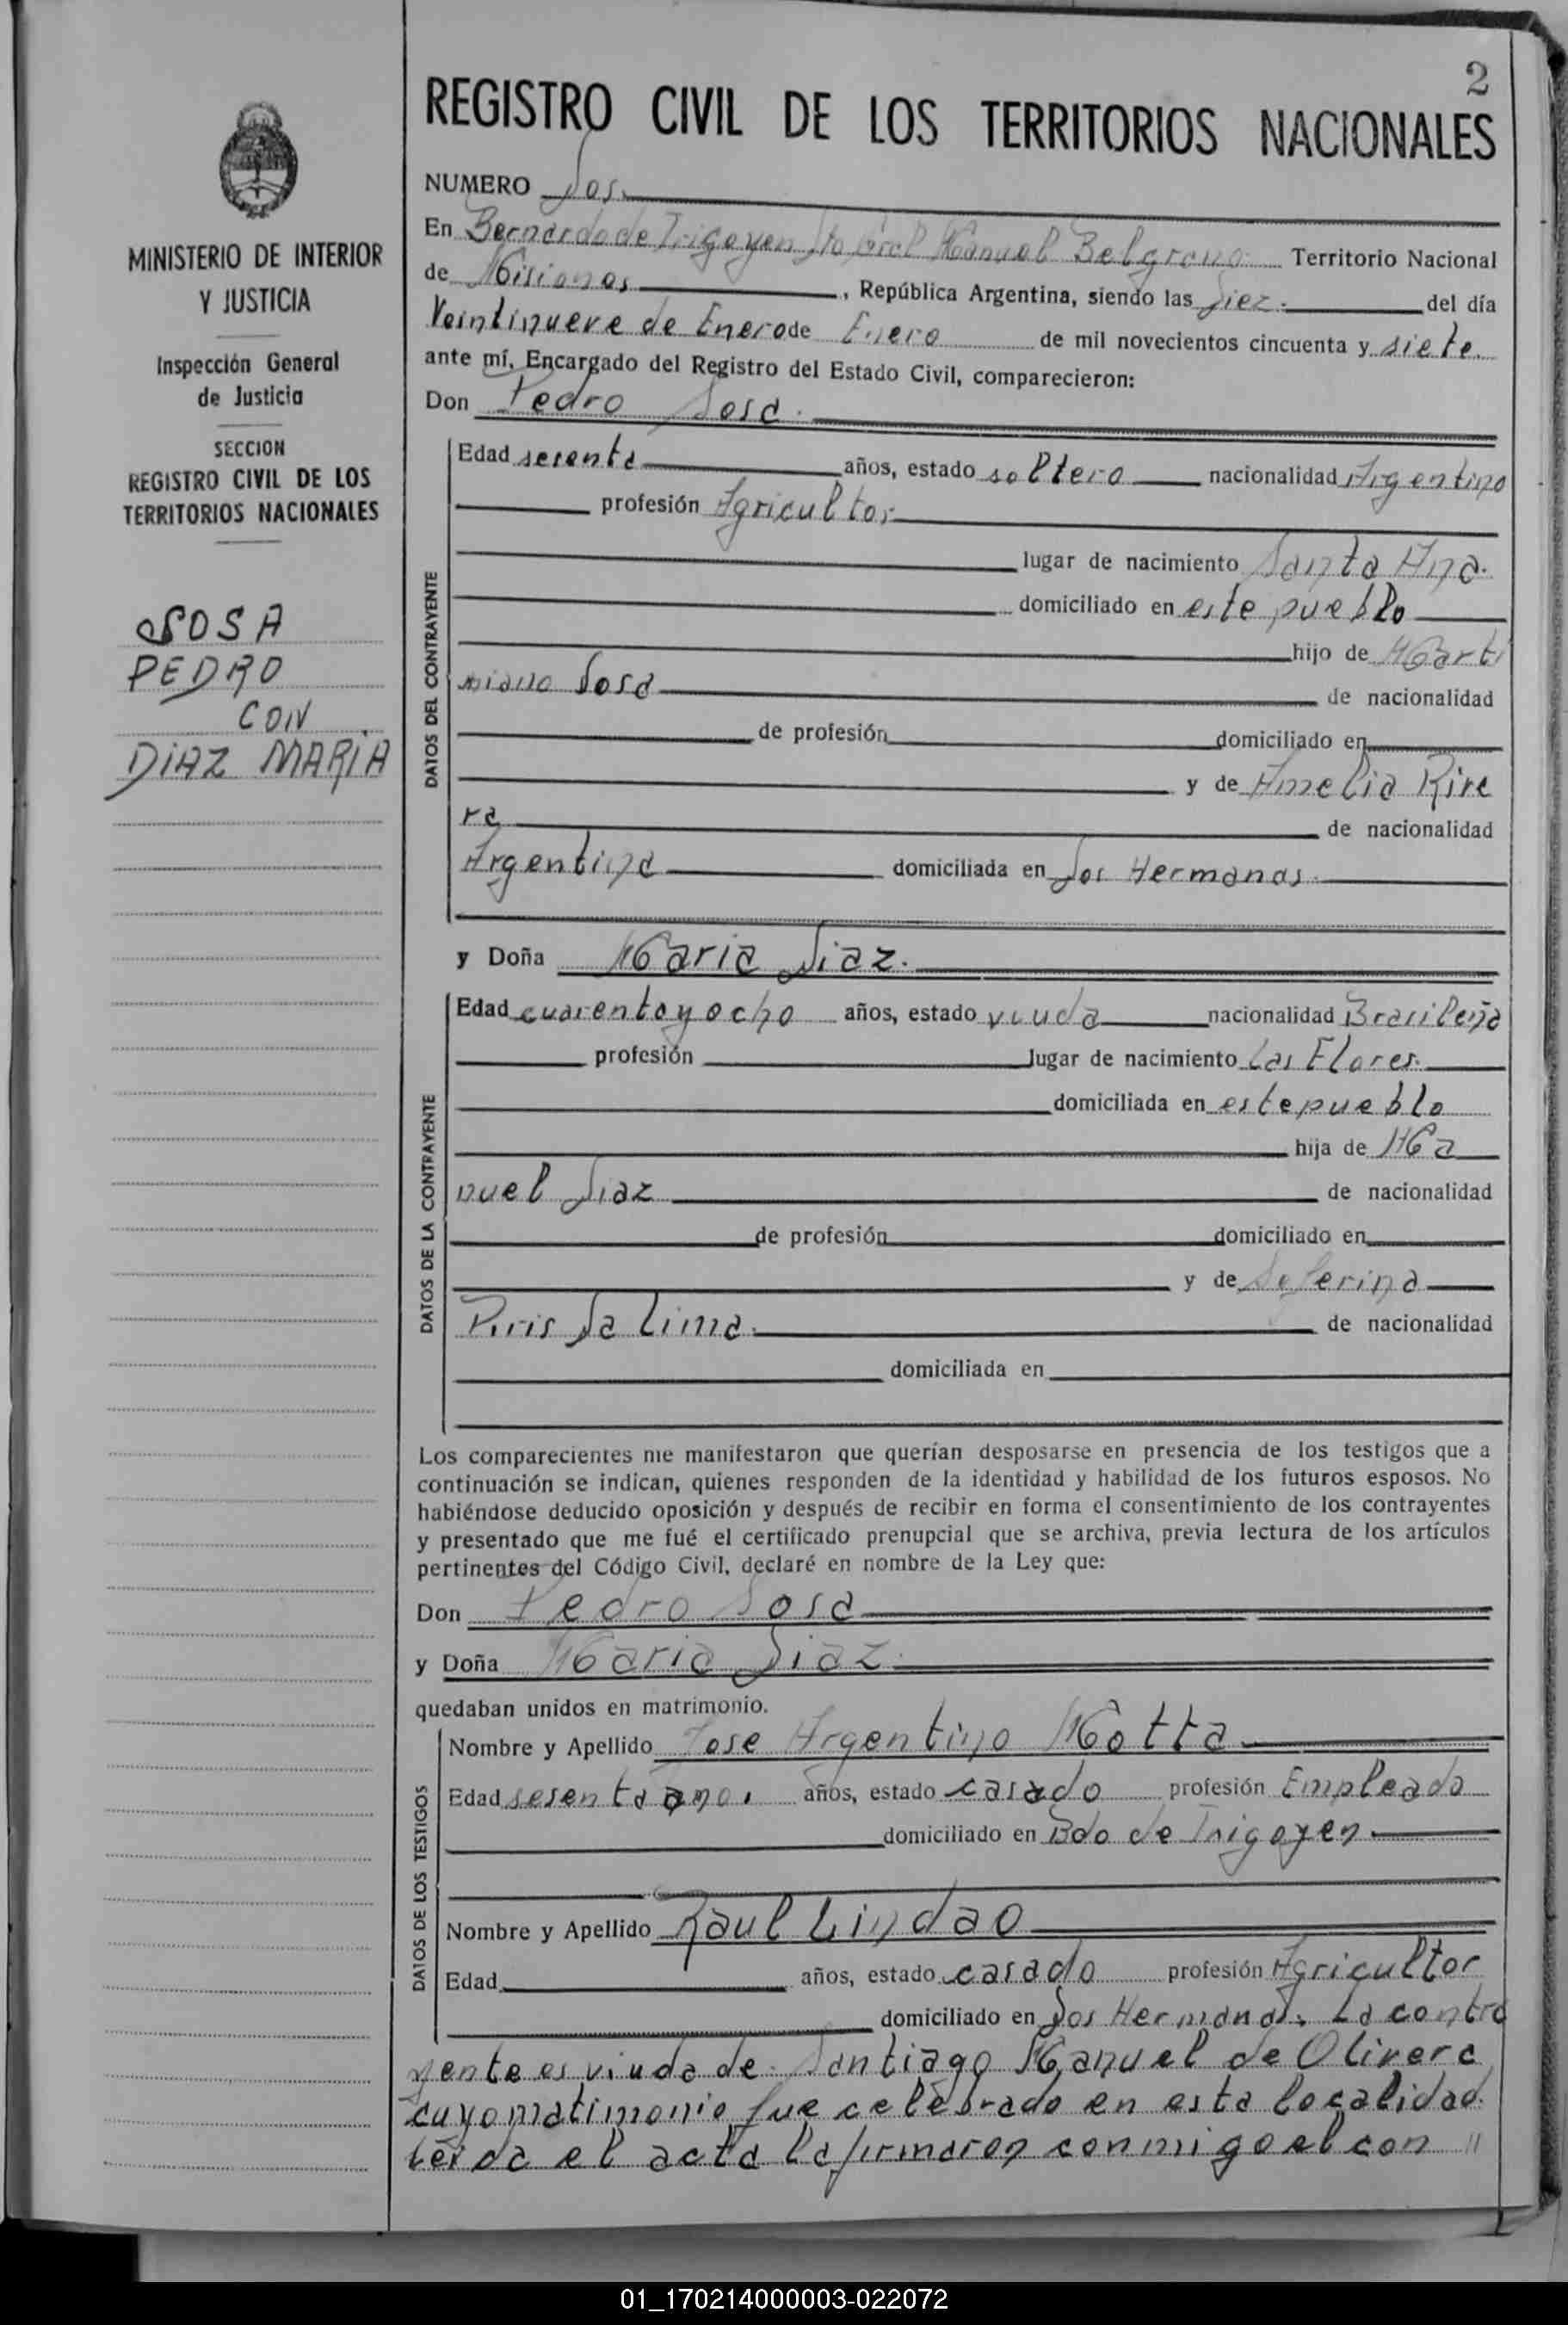 2
REGISTRO CIVIL DE LOS TERRITORIOS NACIONALES
MINISTERIO DE INTERIOR
Y JUSTICIA
Inspección General
de Justicia
SECCION
REGISTRO CIVIL DE LOS
TERRITORIOS NACIONALES
SOSA
PEDRO
CON
DIAZ MARIA
NUMERO Dos.
En Bernardo de Irigoyen Dto Gral Manuel Belgrano Territorio Nacional
de Misiones, República Argentina, siendo las Diez. del día
Veintinueve de Enero de Enero de mil novecientos cincuenta y siete.
ante mí, Encargado del Registro del Estado Civil, comparecieron:
Don Pedro Sosa.
DATOS DEL CONTRAYENTE
Edad años, estado soltero nacionalidad Argentino
profesión Agricultor
lugar de nacimiento Santa Ana.
domiciliado en este pueblo
hijo de Marti
niano Sosa de nacionalidad
de profesión domiciliado en
y de Amelia Rive
ra de nacionalidad
Argentina domiciliada en Dos Hermanas.
y Doña Maria Diaz.
DATOS DE LA CONTRAYENTE
Edad cuarenta y ocho años, estado viuda nacionalidad Brasileña
profesión lugar de nacimiento Las Flores.
domiciliada en este pueblo
hija de Ma
nuel Diaz de nacionalidad
de profesión domiciliado en
y de
Piris Da Lima. de nacionalidad
domiciliada en
Los comparecientes me manifestaron que querían desposarse en presencia de los testigos que a
continuación se indican, quienes responden de la identidad y habilidad de los futuros esposos. No
habiéndose deducido oposición y después de recibir en forma el consentimiento de los contrayentes
y presentado que me fué el certificado prenupcial que se archiva, previa lectura de los artículos
pertinentes del Código Civil, declaré en nombre de la Ley que:
Don Pedro Sosa
y Doña Maria Diaz.
quedaban unidos en matrimonio.
DATOS DE LOS TESTIGOS
Nombre y Apellido Jose Argentino Motta
Edad sesenta años años, estado casado profesión Empleado
domiciliado en Bdo de Irigoyen
Nombre y Apellido Raul Lindao
Edad años, estado casado profesión Agricultor
domiciliado en Dos Hermanas. La contra
yente es viuda de Santiago Manuel de Olivera
cuyo matimonio fue celebrado en esta localidad.
leida el acta la firmaron conmigo el con "
01_170214000003-022072